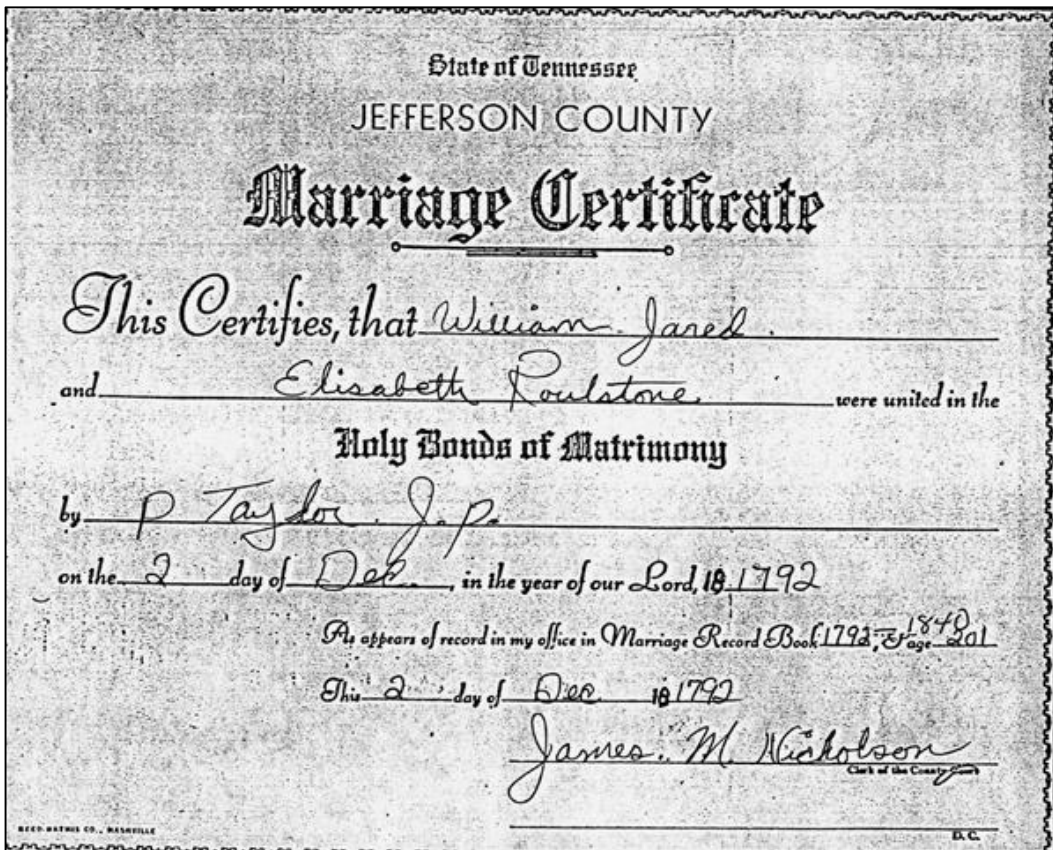 State of Tennessee
JEFFERSON COUNTY
Marriage Certificate
This Certifies, that William Jared.
and Elisabeth Roulstone were united in the
Holy Bonds of Matrimony
by P Taylor J.P.
on the 2 day of Dec., in the year of our Lord, 18 1792
As appears of record in my office in Marriage Record Book 1792-1840, Page 201
This 2 day of Dec 18 1792
James. M. Nicholson
Clerk of the County Court
D. C.
CO., NASHVILLE